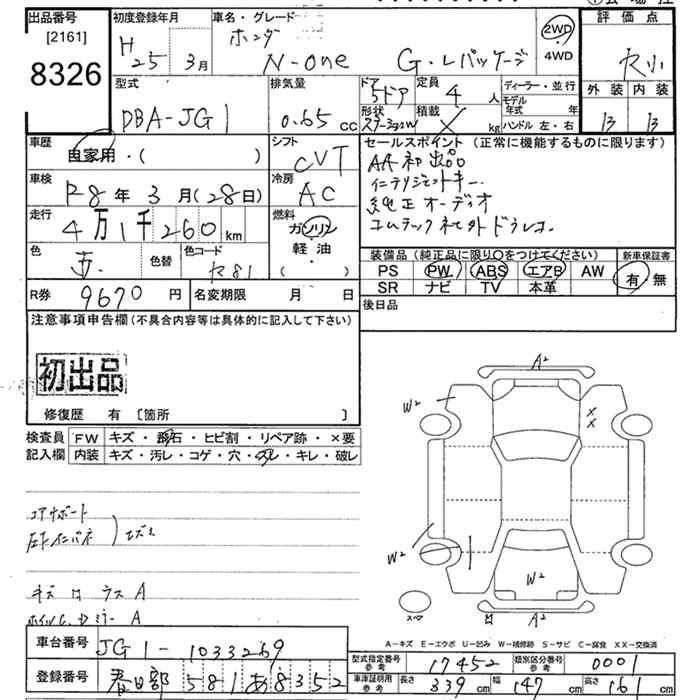 出品番号 [2161] 8326
初度登録年月 H25年 3月
車名・グレード ホンダ N-one G・Lパッケージ
2WD ・4WD
評価点
外装 内装
B B
型式 DBA-JG1
排気量 0.65 cc
ドア 5ドア
形状
定員 4 人
積載 kg
ディーラー・並行
モデル年式 年
ハンドル 左・右
車歴 自家用・( )
シフト CVT
セールスポイント (正常に機能するものに限ります)
AA初出品
インテリジェントキー
純正オーディオ
コムテックナビ外ドラレコ
車検 R8年 3月(28日)
冷房 AC
走行 4万1千260 km
燃料 ガソリン・軽油・( )
色 赤
色替
色コード R81
装備品 (純正品に限り○をつけてください)
新車保証書 有 無
PS PW ABS エアB AW
SR ナビ TV 本革
R券 9670 円
名変期限 月 日
後日品
注意事項申告欄 (不具合内容等は具体的に記入して下さい)
初出品
修復歴 有 [箇所 ]
検査員記入欄
FW キズ・飛石・ヒビ割・リペア跡・×要
内装 キズ・汚レ・コゲ・穴・スレ・キレ・破レ
A2
W2
X
X
W2
W2
スペア
A2
キズ
A
A
A-キズ E-エクボ U-凹み W-補修跡 S-サビ C-腐食 XX-交換済
車台番号 JG1-1033269
登録番号 春日部 581 あ 8352
型式指定番号参考 17452
類別区分番号参考 0001
車庫証明用参考 長さ 339 cm 幅 147 cm 高さ 161 cm